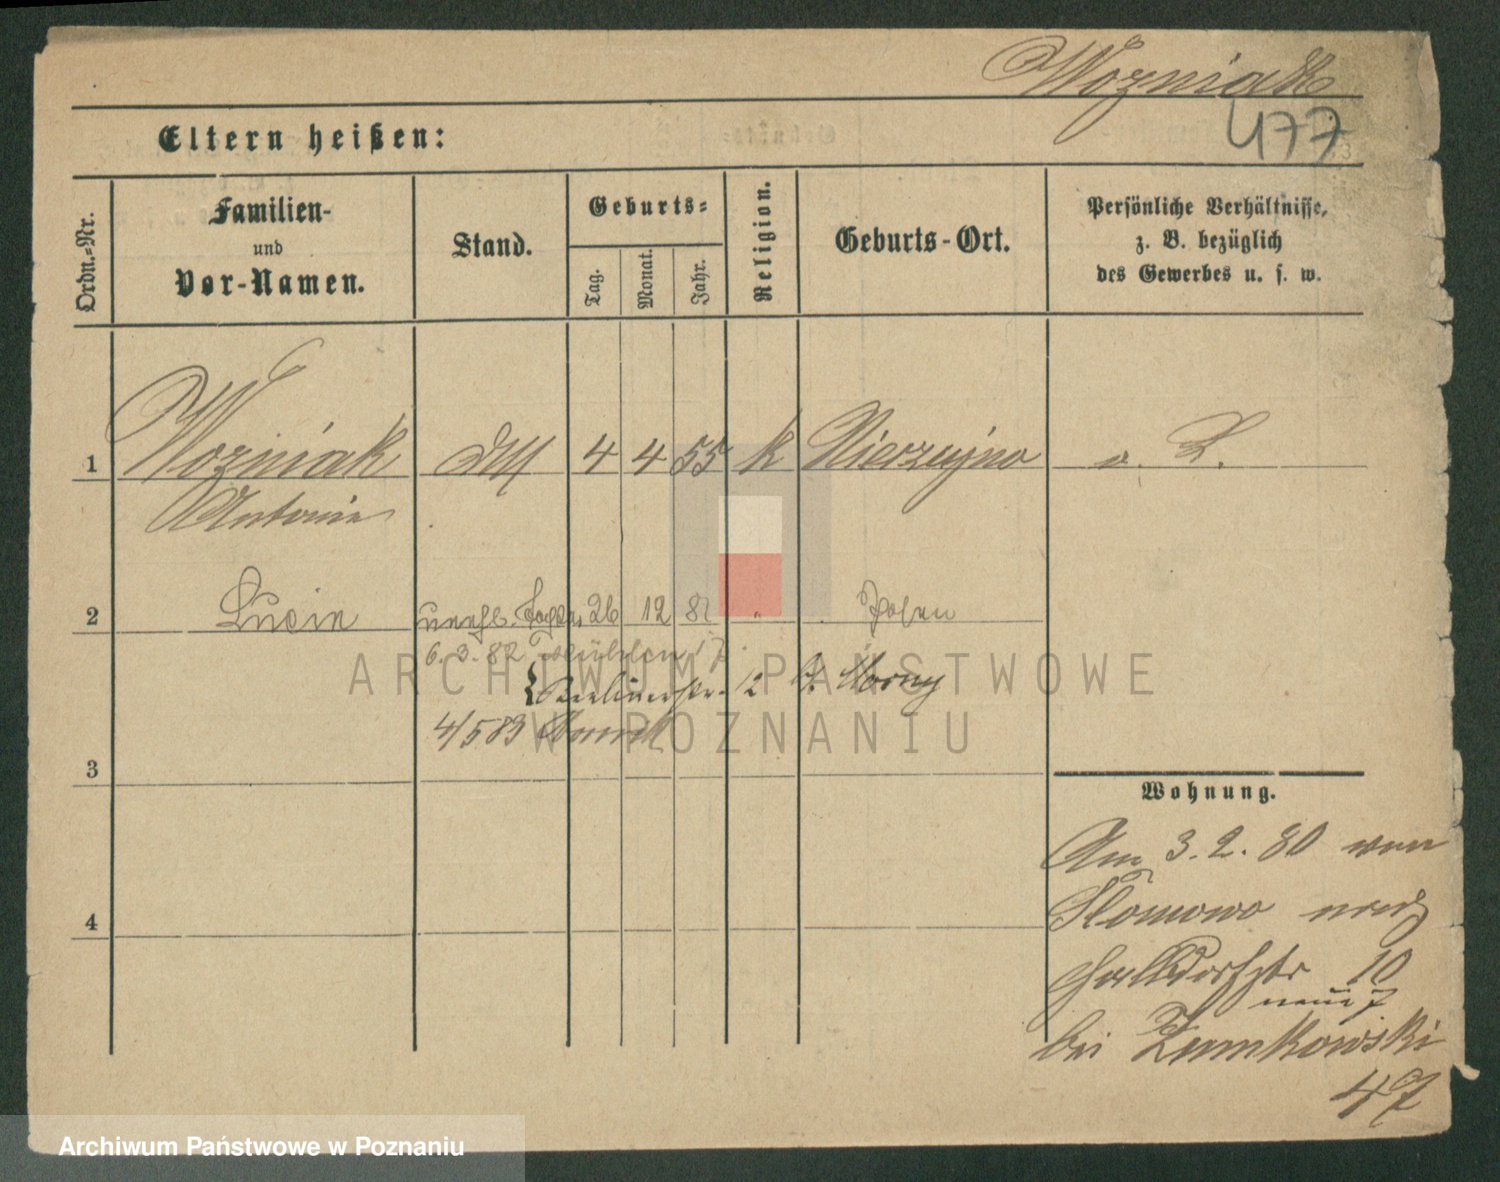 Wozniak
477
Eltern heißen:
Ordn.-Nr.
Familien-
und
Vor-Namen.
Stand.
Geburts-
Tag.
Monat.
Jahr.
Religion.
Geburts-Ort.
Persönliche Verhältnisse,
z. B. bezüglich
des Gewerbes u. s. w.
1 Wozniak 4 4 55 k
Antonie
2 Lucie unehl. Tochter 26 12 81 " Posen
6.3.82 17
Berlinerstr. 12
4/5 83
ARCHIWUM PAŃSTWOWE
W POZNANIU
3
Wohnung.
Am 3.2.80 von
Slomowo nach
Halbdorfstr 10
neue 7
4
bei Zamkowski
47
Archiwum Państwowe w Poznaniu